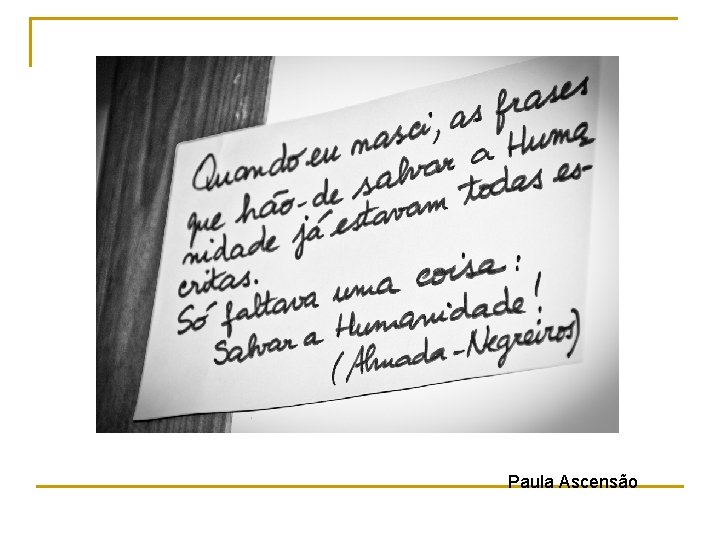 Quando eu nasci, as frases
que hão-de salvar a Huma
nidade já estavam todas es-
critas.
Só faltava uma coisa:
Salvar a Humanidade!
(Almada-Negreiros)
Paula Ascensão